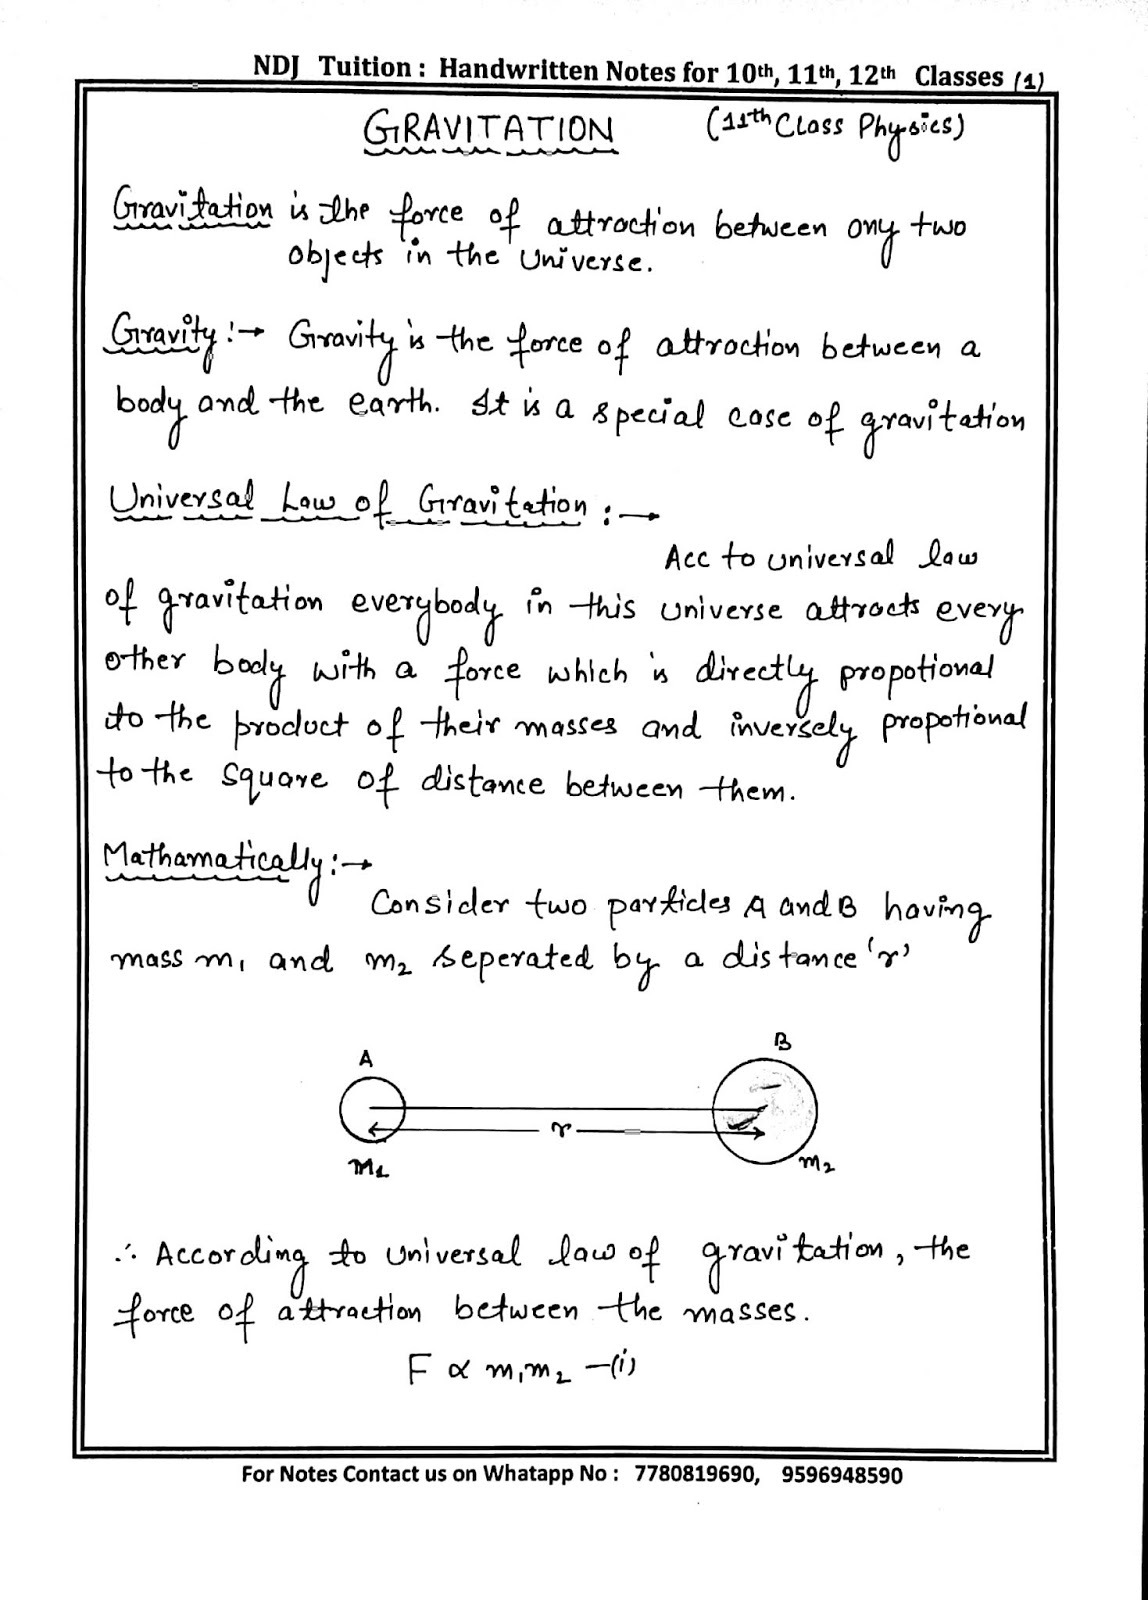 NDJ Tuition : Handwritten Notes for 10th, 11th, 12th Classes (1)
GRAVITATION (11th Class Physics)
Gravitation is the force of attraction between any two
objects in the universe.
Gravity :→ Gravity is the force of attraction between a
body and the earth. It is a special case of gravitation
Universal Law of Gravitation :→
Acc to universal law
of gravitation everybody in this universe attracts every
other body with a force which is directly propotional
to the product of their masses and inversely propotional
to the square of distance between them.
Mathamatically :→
Consider two particles A and B having
mass m₁ and m₂ seperated by a distance 'r'
A B
r
M₁ m₂
∴ According to universal law of gravitation, the
force of attraction between the masses.
F ∝ m₁m₂ —(i)
For Notes Contact us on Whatapp No : 7780819690, 9596948590